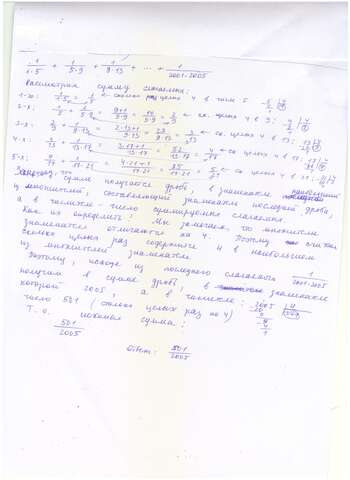 1/1·5 + 1/5·9 + 1/9·13 + ... + 1/2001·2005
Рассмотрим сумму слагаемых:
1-го: 1/1·5 = 1/5 ← сколько раз целых 4 в числе 5
2-х: 1/5 + 1/5·9 = 9+1/5·9 = 10/5·9 = 2/9 ← ск. целых 4 в 9:
3-х: 2/9 + 1/9·13 = 2·13+1/9·13 = 27/9·13 = 3/13 ← ск. целых 4 в 13:
4-х: 3/13 + 1/13·17 = 3·17+1/13·17 = 52/13·17 = 4/17 ← ск. целых 4 в 17:
5-х: 4/17 + 1/17·21 = 4·21+1/17·21 = 85/17·21 = 5/21 ← ск. целых 4 в 21:
в сумме получается дробь, в знаменателе наибольший
из множителей, составляющий знаменатель последней дроби,
а в числителе - число суммируемых слагаемых.
Как их определить? Мы замечаем, что множители
знаменателя отличаются на 4. Поэтому считаем
сколько целых раз содержится 4 в наибольшем
из множителей знаменателя.
Поэтому, исходя из последнего слагаемого 1/2001·2005
получим в сумме дробь, в знаменателе
которой 2005, а в числителе:
число 501 (столько целых раз по 4)
Т.о. искомая сумма:
501/2005
Ответ: 501/2005